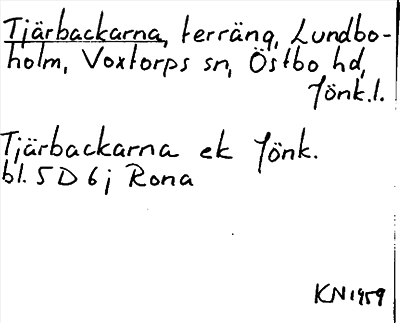 Tjärbackarna, terräng, Lundbo-
holm, Voxtorps sn, Östbo hd,
Jönk.l.
Tjärbackarna ek Jönk.
bl. 5 D 6 j Rona
KN 1959